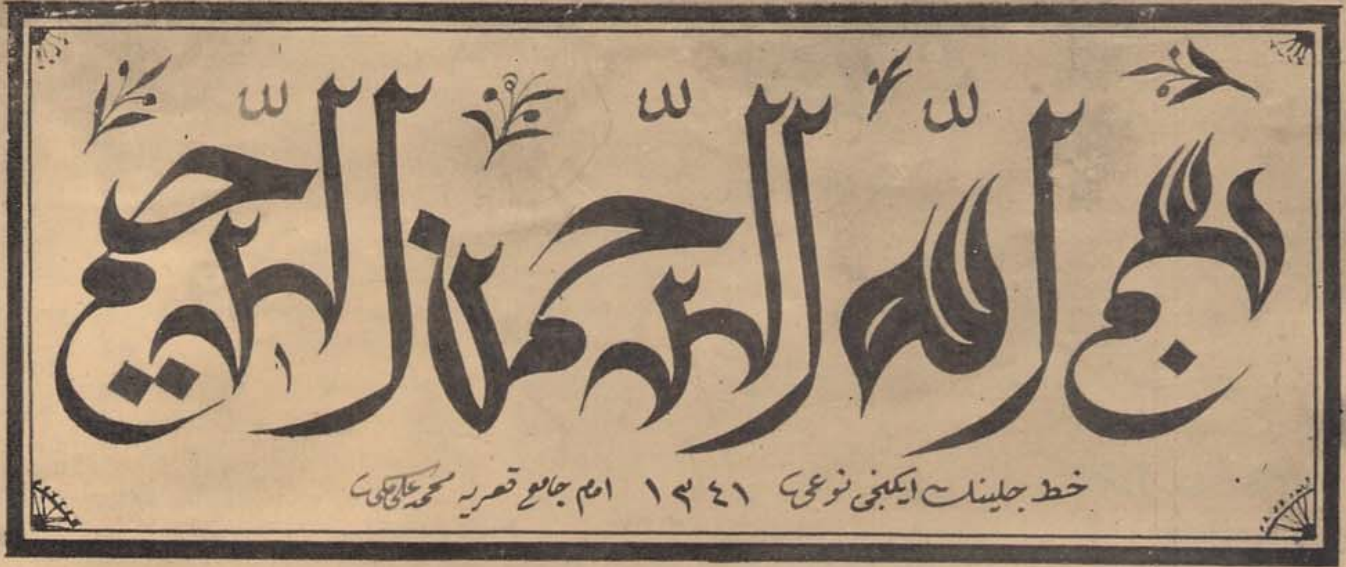 بسم الله الرحمن الرحيم
خط جلينك ایکنجی نوعی ١٣٤١ امام جامع قصریه محمد علی مکی